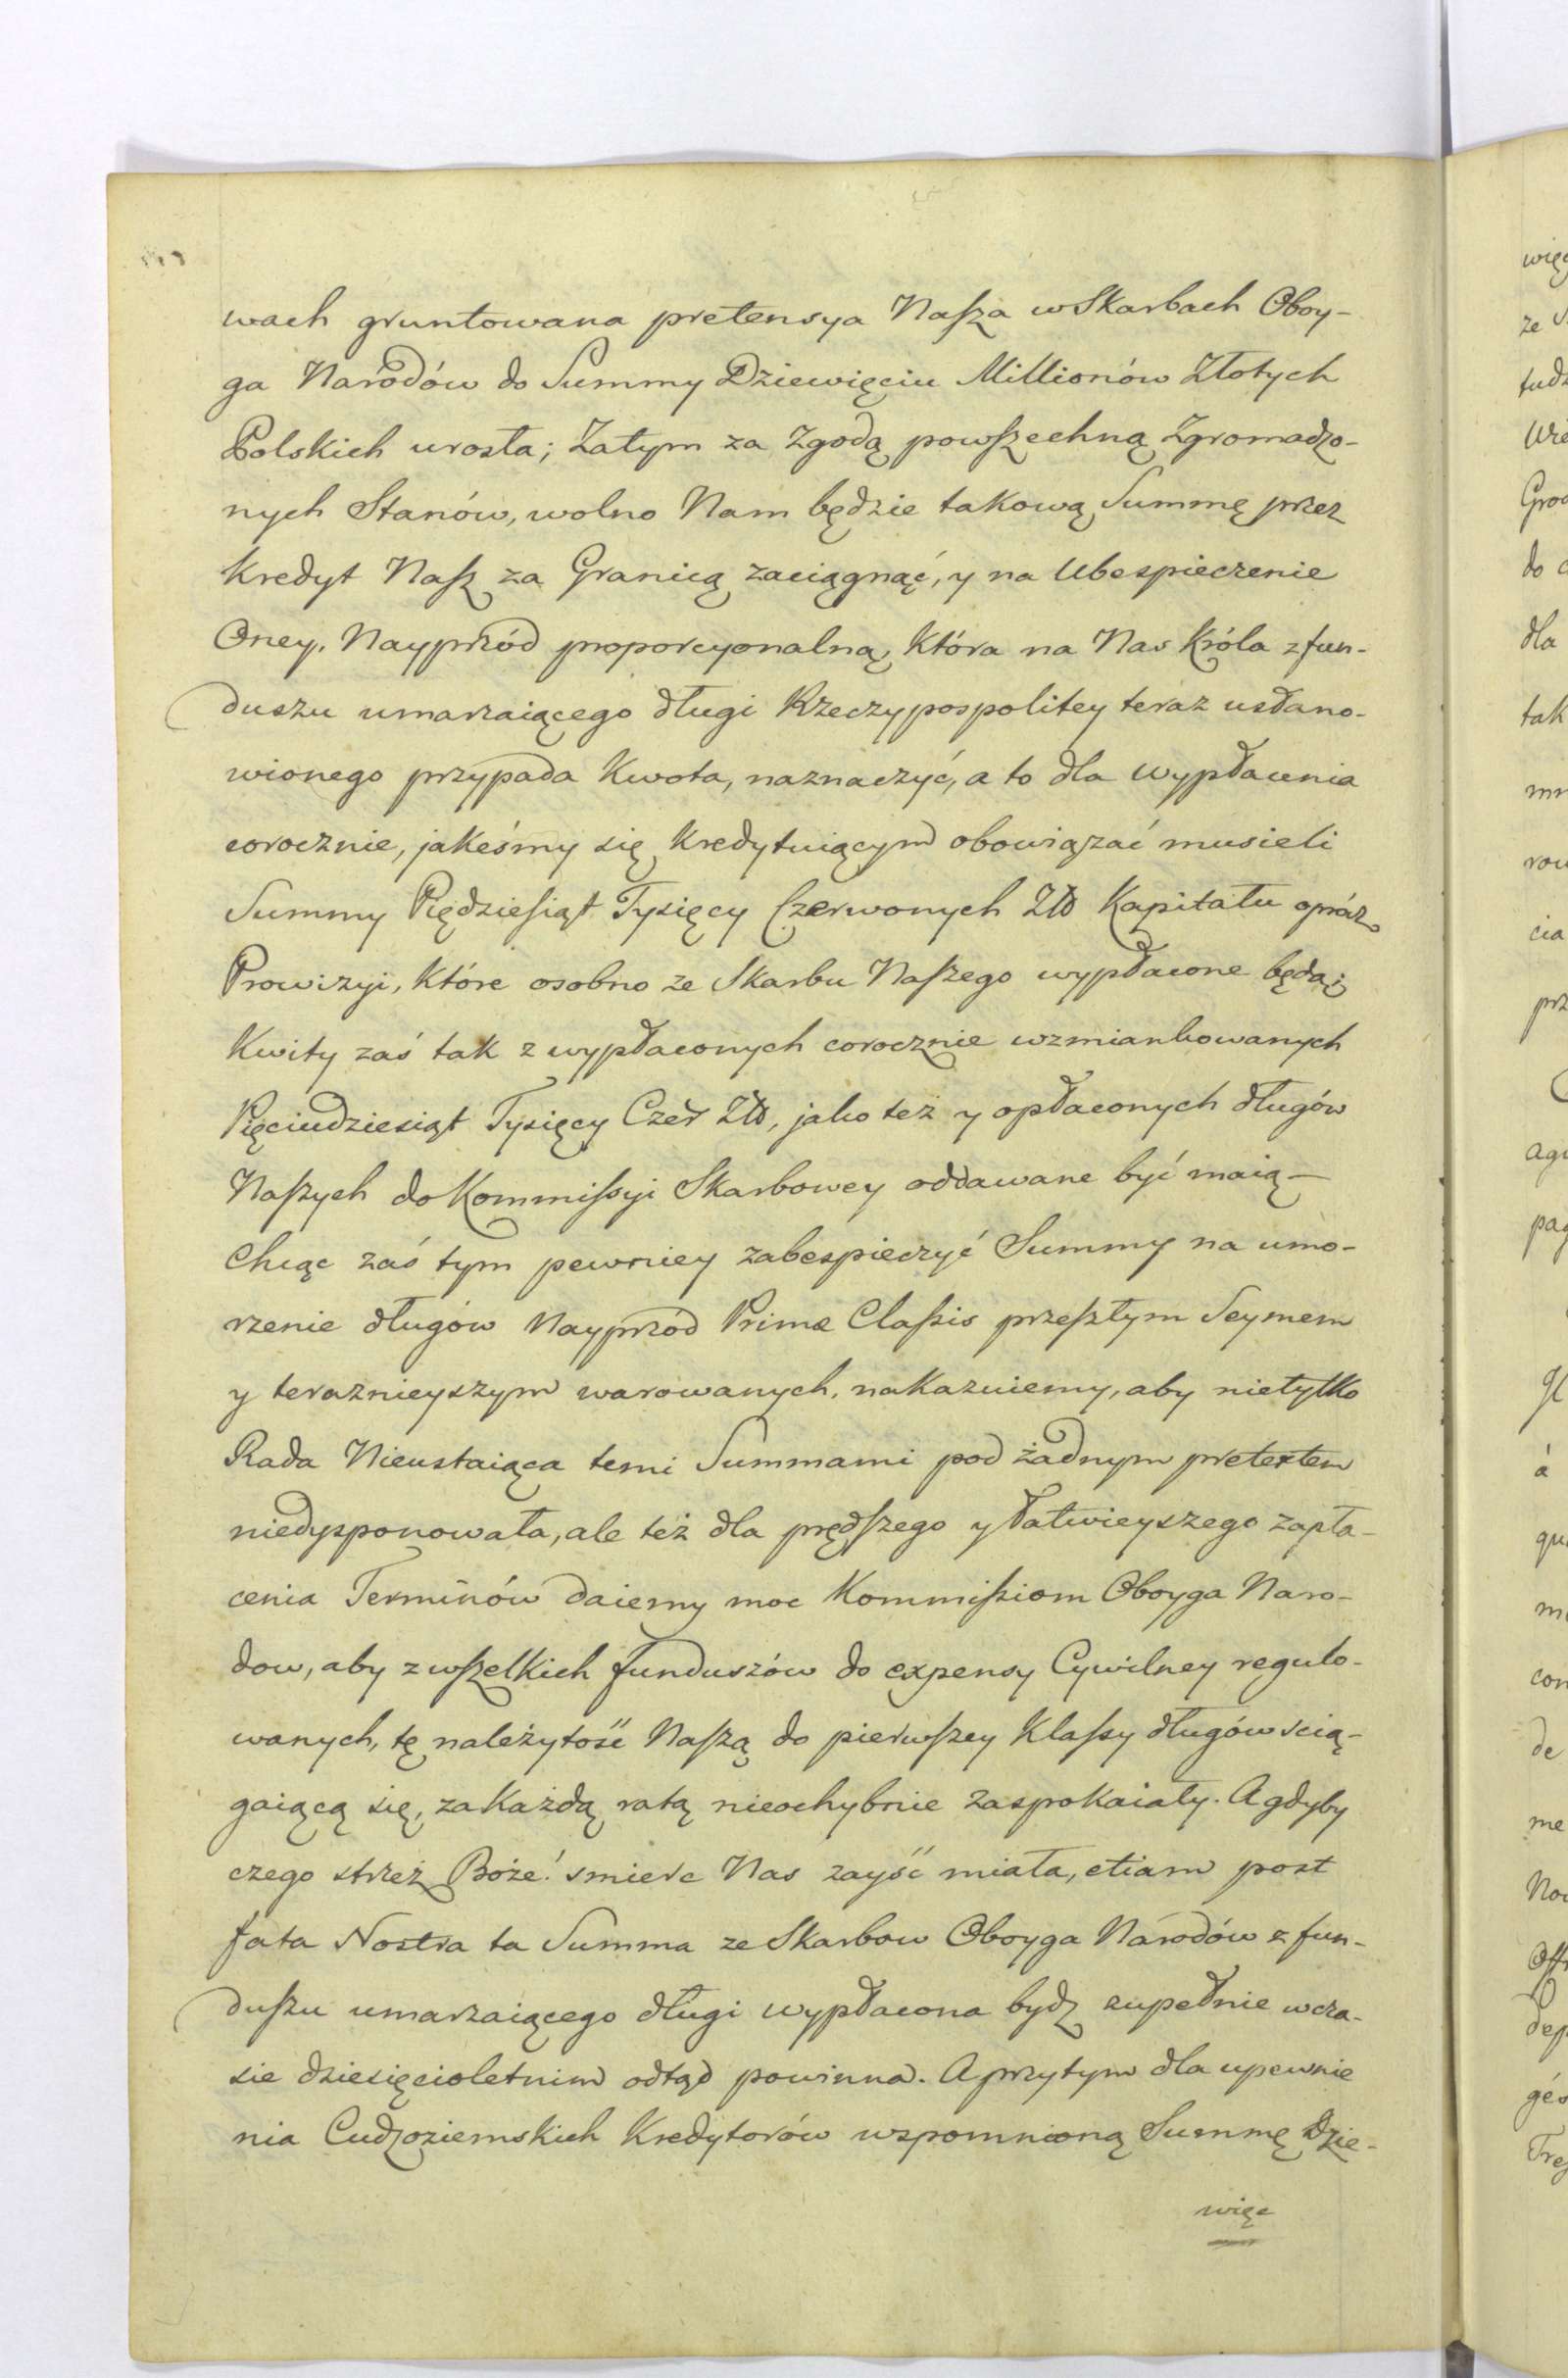 wach gruntowana pretensya Naſza w Skarbach Oboy-
ga Narodów do Summy Dziewięciu Millionów Złotych
Polskich urosła; Zatym za Zgodą powſzechną Zgromadzo-
nych Stanów, wolno Nam będzie takową Summę przez
kredyt Naſz za Granicą zaciągnąć, y na Ubespieczenie
Oney, Nayprzód proporcyonalną, Która na Nas Króla z fun-
duszu umarzaiącego długi Rzeczypospolitey teraz usłano-
wionego przypada Kwota, naznaczyć, a to dla wypłacenia
corocznie, jakeśmy się kredytuiącym obowiązać musieli
Summy Piędzieſiąt Tyſięcy Czerwonych Zło Kapitału opróz
Prowizyi, Które osobno ze Skarbu Naſzego wypłacone będą;
Kwity zaś tak z wypłaconych corocznie wzmiankowanych
Pięciudziesiąt Tysięcy Czer Zło, jako też y opłaconych długów
Naſzych do Kommiſsyi Skarbowey oddawane być maią —
Chcąc zaś tym pewniey zabespieczyć Summy na umo-
rzenie długów Nayprzód Primæ Claſsis przeſzłym Seymem
y teraznieyszym warowanych, nakazuiemy, aby nietylko
Rada Nieustaiąca temi Summami pod żadnym pretextem
niedysponowała, ale też dla prędſzego y łatwieyszego zapła-
cenia Terminów daiemy moc Kommiſsiom Oboyga Naro-
dow, aby z wſzelkich funduszów do expensy Cywilney regulo-
wanych, tę należytość Naſzą do pierwſzey Klaſsy długów ścią-
gaiącą się, za Każdą ratą nieochybnie zaspokaiały. A gdyby
czego strzeż Boże! smierc Nas zayść miała, etiam post
fata Nostra ta Summa ze Skarbow Oboyga Narodów z fun-
duſzu umarzaiącego długi wypłacona bydz zupełnie w cza-
sie dziesięcioletnim odtąd powinna. A przytym dla upewnie
nia Cudzoziemskich Kredytorów wspomnioną Summę Dzie-
więc